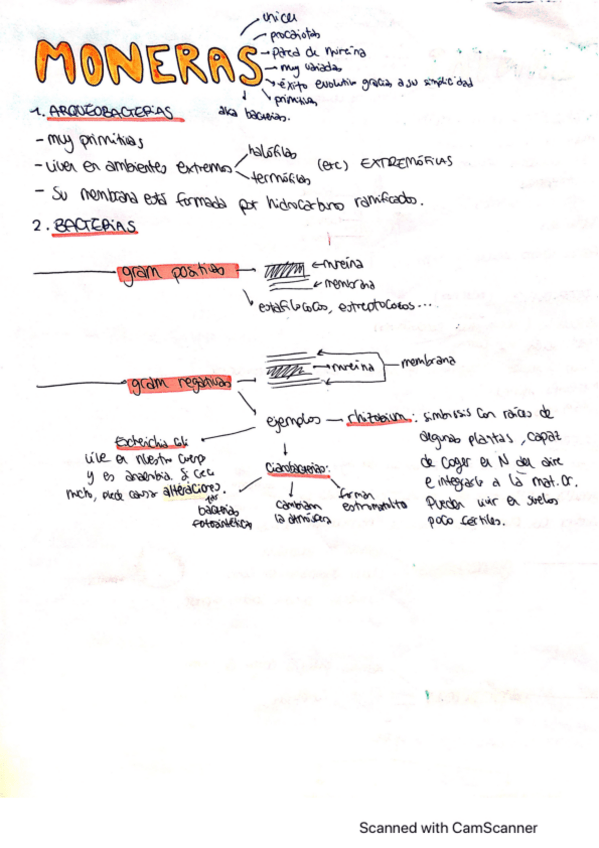 unicel
procariotas
MONERAS
pared de mureina
muy variadas
éxito evolutivo gracias a su simplicidad
primitivas
aka bacterias.
1. ARQUEOBACTERIAS
- muy primitivas
- viven en ambientes extremos
halófilas
termófilas
(etc) EXTREMÓFILAS
- Su membrana está formada por hidrocarburo ramificado.
2. BACTERIAS
gram positivas
mureina
membrana
estafilococos, estreptococos...
gram negativas
mureina
membrana
ejemplos
rhizobium: simbiosis con raíces de
algunas plantas, capaz
de coger el N del aire
e integrarlo a la mat. or.
Pueden vivir en suelos
poco fértiles.
Escherichia Coli
vive en nuestro cuerpo
y es anaerobia. Si crece
mucho, puede causar alteraciones.
Cianobacterias:
bacterias
fotosintéticas
cambiaron
la atmósfera
forman
estromatolito
Scanned with CamScanner